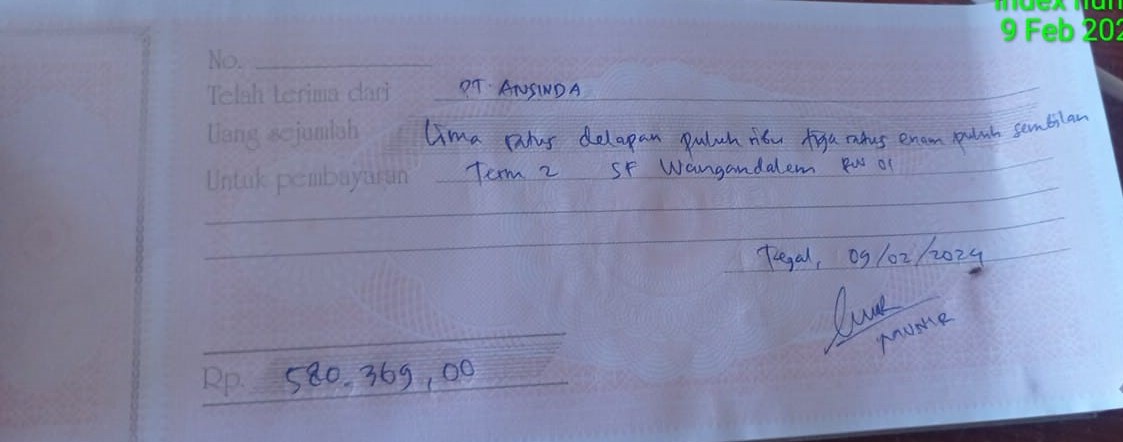 9 Feb 202
No.
Telah terima dari PT. ANSINDA
Uang sejumlah Lima ratus delapan puluh ribu tiga ratus enam puluh sembilan
Untuk pembayaran Term 2 SF Wangandalem RW 01
Tegal, 09/02/2024
MUNIR
Rp. 580.369,00